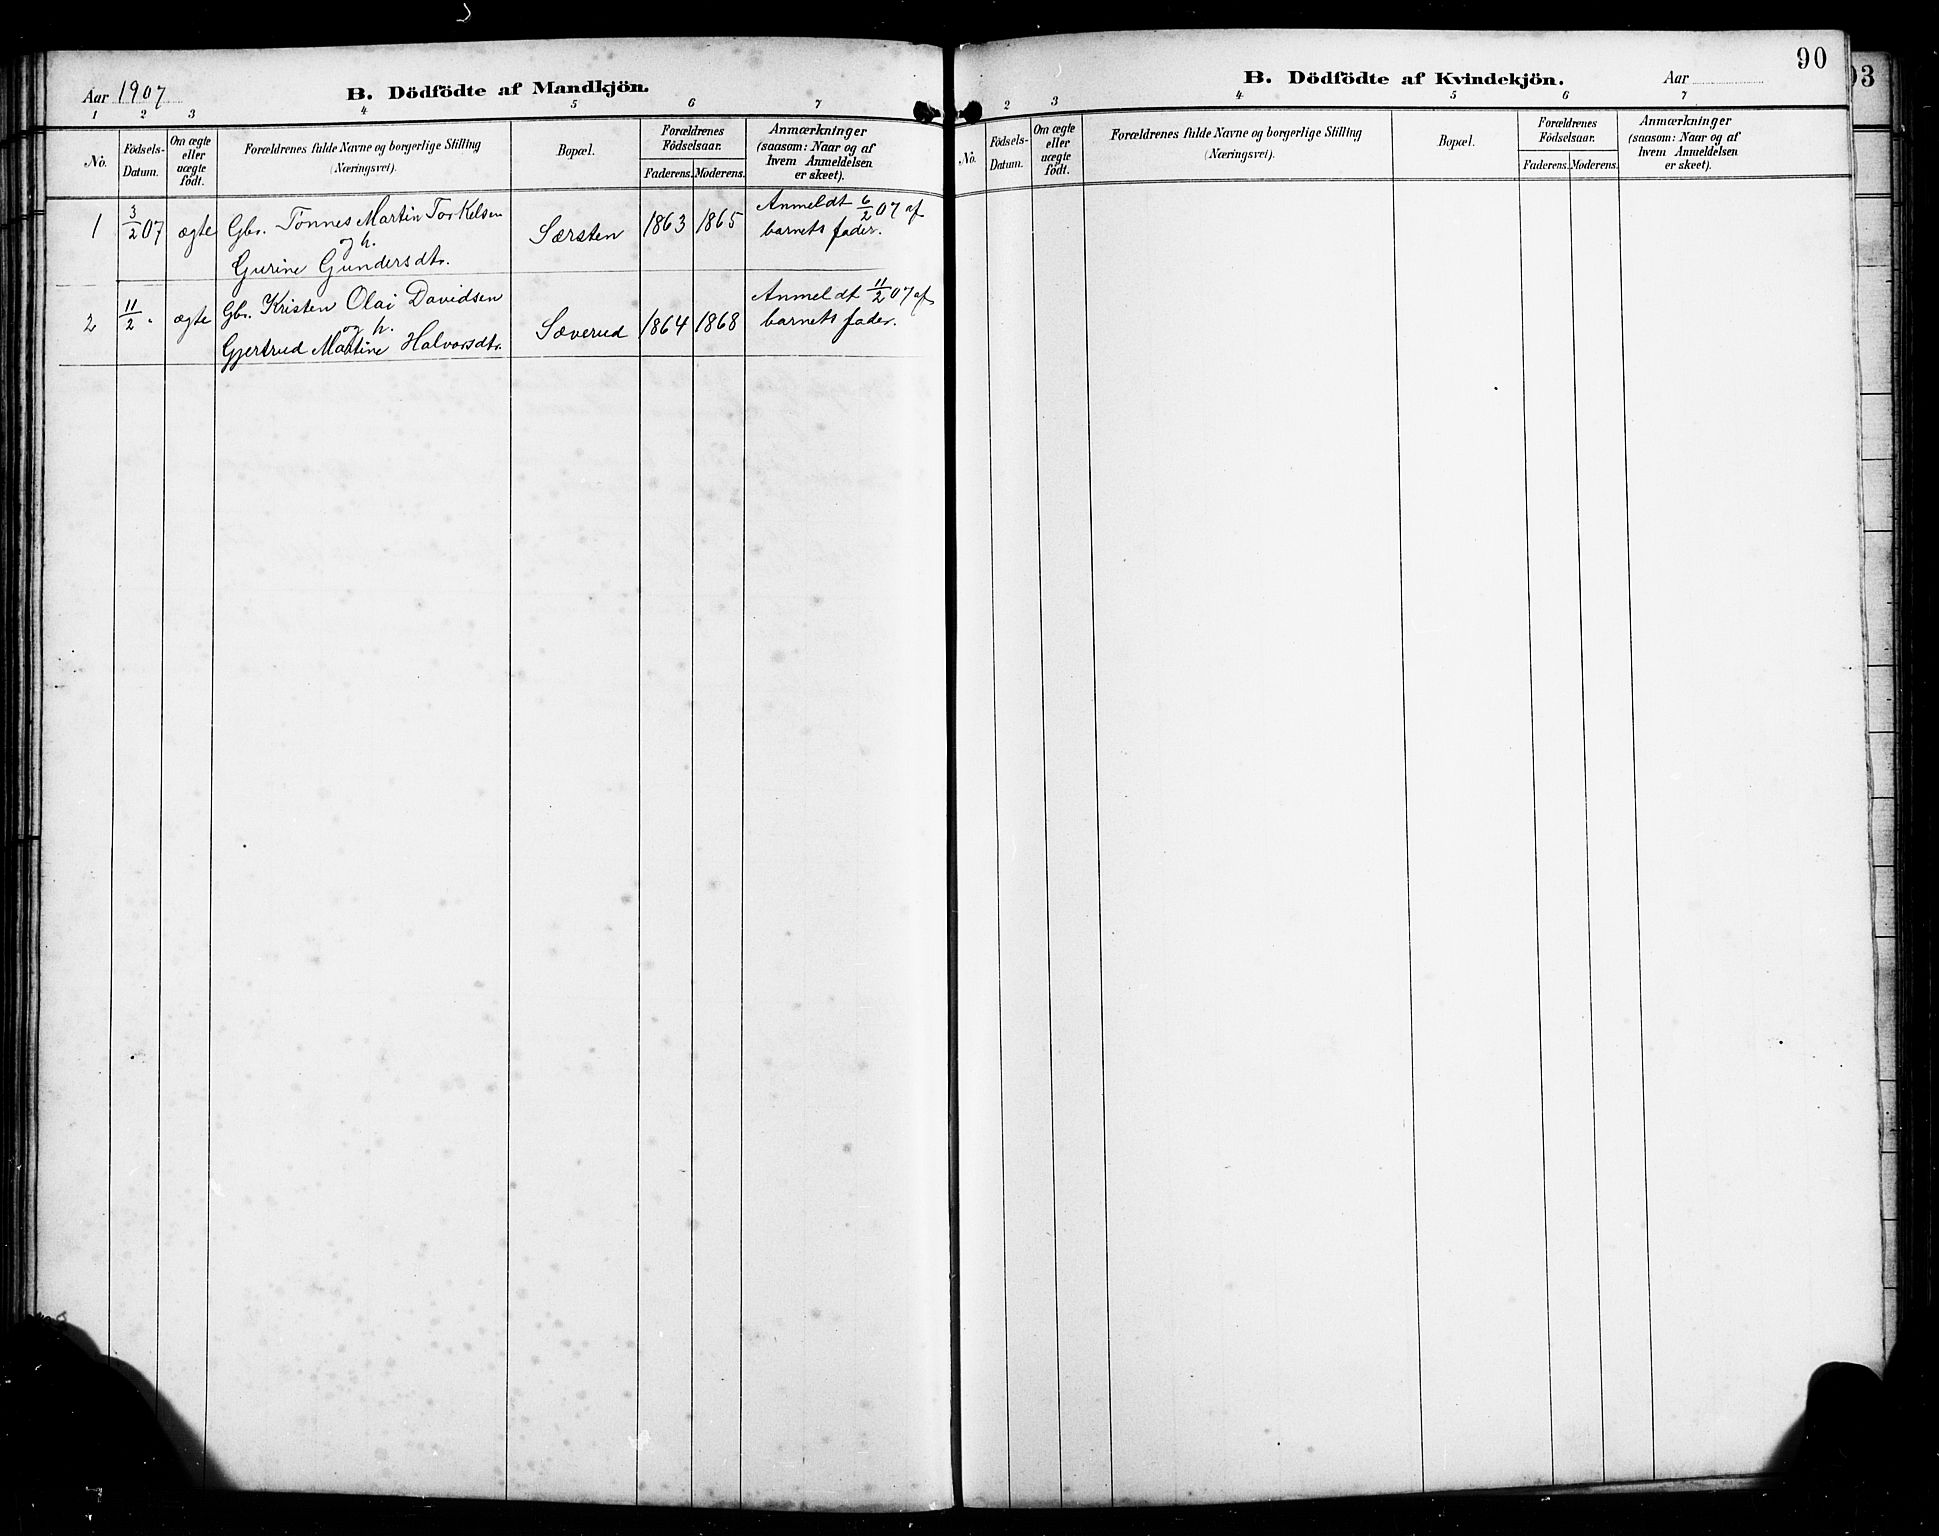 Aar 1907
B. Dödfödte af Mandkjön.
1 2 3 4 5 6 7
No.
Födsels-
Datum.
Om ægte
eller
uægte
født.
Forældrenes fulde Navne og borgerlige Stilling
(Næringsvei).
Bopæl.
Forældrenes
Födselsaar.
Faderens. Moderens.
Anmærkninger
(saasom: Naar og af
hvem Anmeldelsen
er skeet).
1 3/2 07 ægte Gbr. Tønnes Martin Torkelsen
og h.
Gurine Gundersdtr.
Særsten 1863 1865
Anmeldt 6/2 07 af
barnets fader.
2 11/2 " ægte Gbr. Kristen Olai Davidsen
og h.
Gjertrud Martine Halvorsdtr.
Sæverud 1864 1868
Anmeldt 11/2 07 af
barnets fader.
90
B. Dödfödte af Kvindekjön.
Aar
2 3 4 5 6 7
No.
Födsels-
Datum.
Om ægte
eller
uægte
født.
Forældrenes fulde Navne og borgerlige Stilling
(Næringsvei).
Bopæl.
Forældrenes
Födselsaar.
Faderens. Moderens.
Anmærkninger
(saasom: Naar og af
hvem Anmeldelsen
er skeet).
93